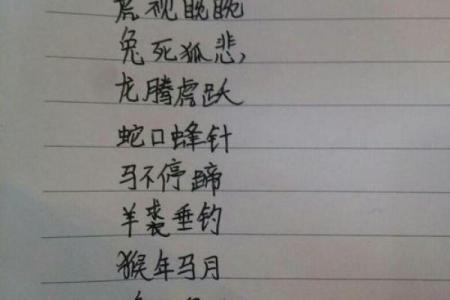 虎视眈眈
兔死狐悲,
龙腾虎跃
蛇口蜂针
马不停蹄
羊裘垂钓
猴年马月